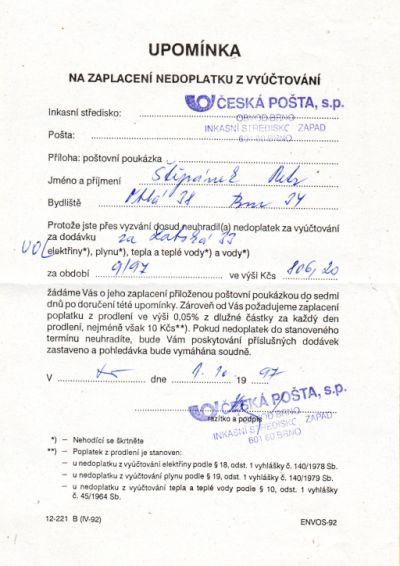 UPOMÍNKA
NA ZAPLACENÍ NEDOPLATKU Z VYÚČTOVÁNÍ
Inkasní středisko: ČESKÁ POŠTA, s.p.
OBVOD BRNO
INKASNÍ STŘEDISKO ZÁPAD
601 60 BRNO
Pošta:
Příloha: poštovní poukázka
Jméno a příjmení Štěpánek Petr
Bydliště 38 Brno 34
Protože jste přes vyzvání dosud neuhradil(a) nedoplatek za vyúčtování
za dodávku za 33
elektřiny*), plynu*), tepla a teplé vody*) a vody*)
za období 9/97 ve výši Kčs 806,20
žádáme Vás o jeho zaplacení přiloženou poštovní poukázkou do sedmi
dnů po doručení této upomínky. Zároveň od Vás požadujeme zaplacení
poplatku z prodlení ve výši 0,05% z dlužné částky za každý den
prodlení, nejméně však 10 Kčs**). Pokud nedoplatek do stanoveného
termínu neuhradíte, bude Vám poskytování příslušných dodávek
zastaveno a pohledávka bude vymáhána soudně.
V dne 1.10. 19 97
ČESKÁ POŠTA, s.p.
OBVOD BRNO
razítko a podpis
INKASNÍ STŘEDISKO ZÁPAD
601 60 BRNO
*) – Nehodící se škrtněte
**) – Poplatek z prodlení je stanoven:
– u nedoplatku z vyúčtování elektřiny podle § 18, odst. 1 vyhlášky č. 140/1978 Sb.
– u nedoplatku z vyúčtování plynu podle § 19, odst. 1 vyhlášky č. 140/1979 Sb.
– u nedoplatku z vyúčtování tepla a teplé vody podle § 10, odst. 1 vyhlášky
č. 45/1964 Sb.
12-221 B (IV-92) ENVOS-92